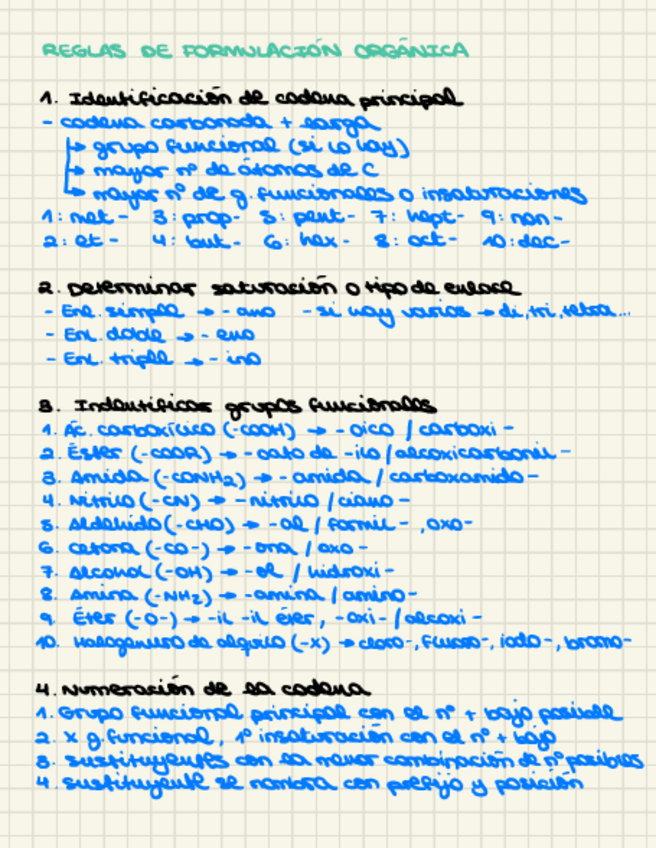 REGLAS DE FORMULACIÓN ORGÁNICA
1. Identificación de cadena principal
- cadena carbonada + larga
↳ grupo funcional (si lo hay)
↳ mayor nº de átomos de C
↳ mayor nº de g. funcionales o insaturaciones
1: met- 3: prop- 5: pent- 7: hept- 9: non-
2: et- 4: but- 6: hex- 8: oct- 10: dec-
2. Determinar saturación o tipo de enlace
- Enl. simple → -ano - si hay varios → di, tri, tetra...
- Enl. doble → -eno
- Enl. triple → -ino
3. Indentificar grupos funcionales
1. Ác. carboxílico (-COOH) → -oico / carboxi-
2. Éster (-COOR) → -oato de -ilo / alcoxicarbonil-
3. Amida (-CONH2) → -amida / carboxamido-
4. Nitrilo (-CN) → -nitrilo / ciano-
5. Aldehído (-CHO) → -al / formil- , oxo-
6. Cetona (-CO-) → -ona / oxo-
7. Alcohol (-OH) → -ol / hidroxi-
8. Amina (-NH2) → -amina / amino-
9. Éter (-O-) → -il -il éter, -oxi- / alcoxi-
10. Halogenuro de alquilo (-X) → cloro-, fluoro-, iodo-, bromo-
4. Numeración de la cadena
1. Grupo funcional principal con el nº + bajo posible
2. X g. funcional, 1º insaturación con el nº + bajo
3. Sustituyentes con la menor combinación de nº posibles
4. Sustituyente se nombra con prefijo y posición